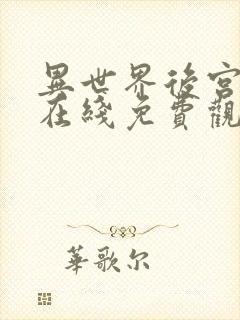 異世界後宮
在綫免費觀
華歌尔